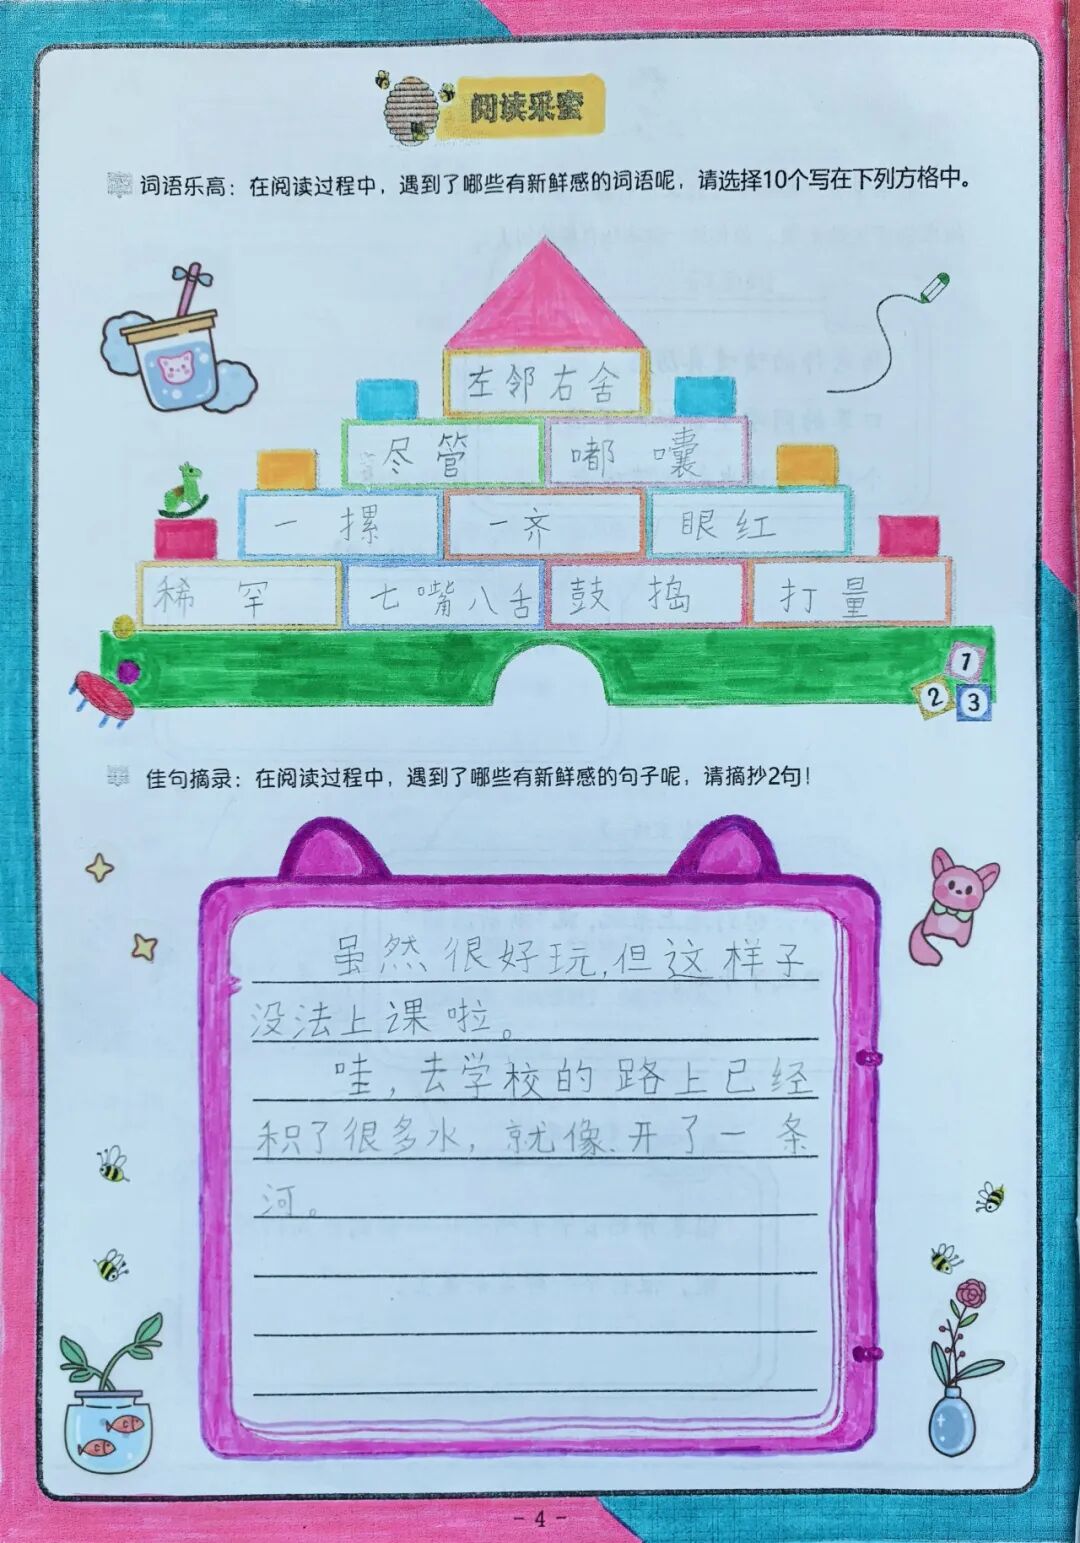 阅读采蜜
词语乐高：在阅读过程中，遇到了哪些有新鲜感的词语呢，请选择10个写在下列方格中。
左邻右舍
尽管 嘟囔
一摞 一齐 眼红
稀罕 七嘴八舌 鼓捣 打量
1
2 3
佳句摘录：在阅读过程中，遇到了哪些有新鲜感的句子呢，请摘抄2句！
虽然很好玩，但这样子
没法上课啦。
哇，去学校的路上已经
积了很多水，就像开了一条
河。
- 4 -